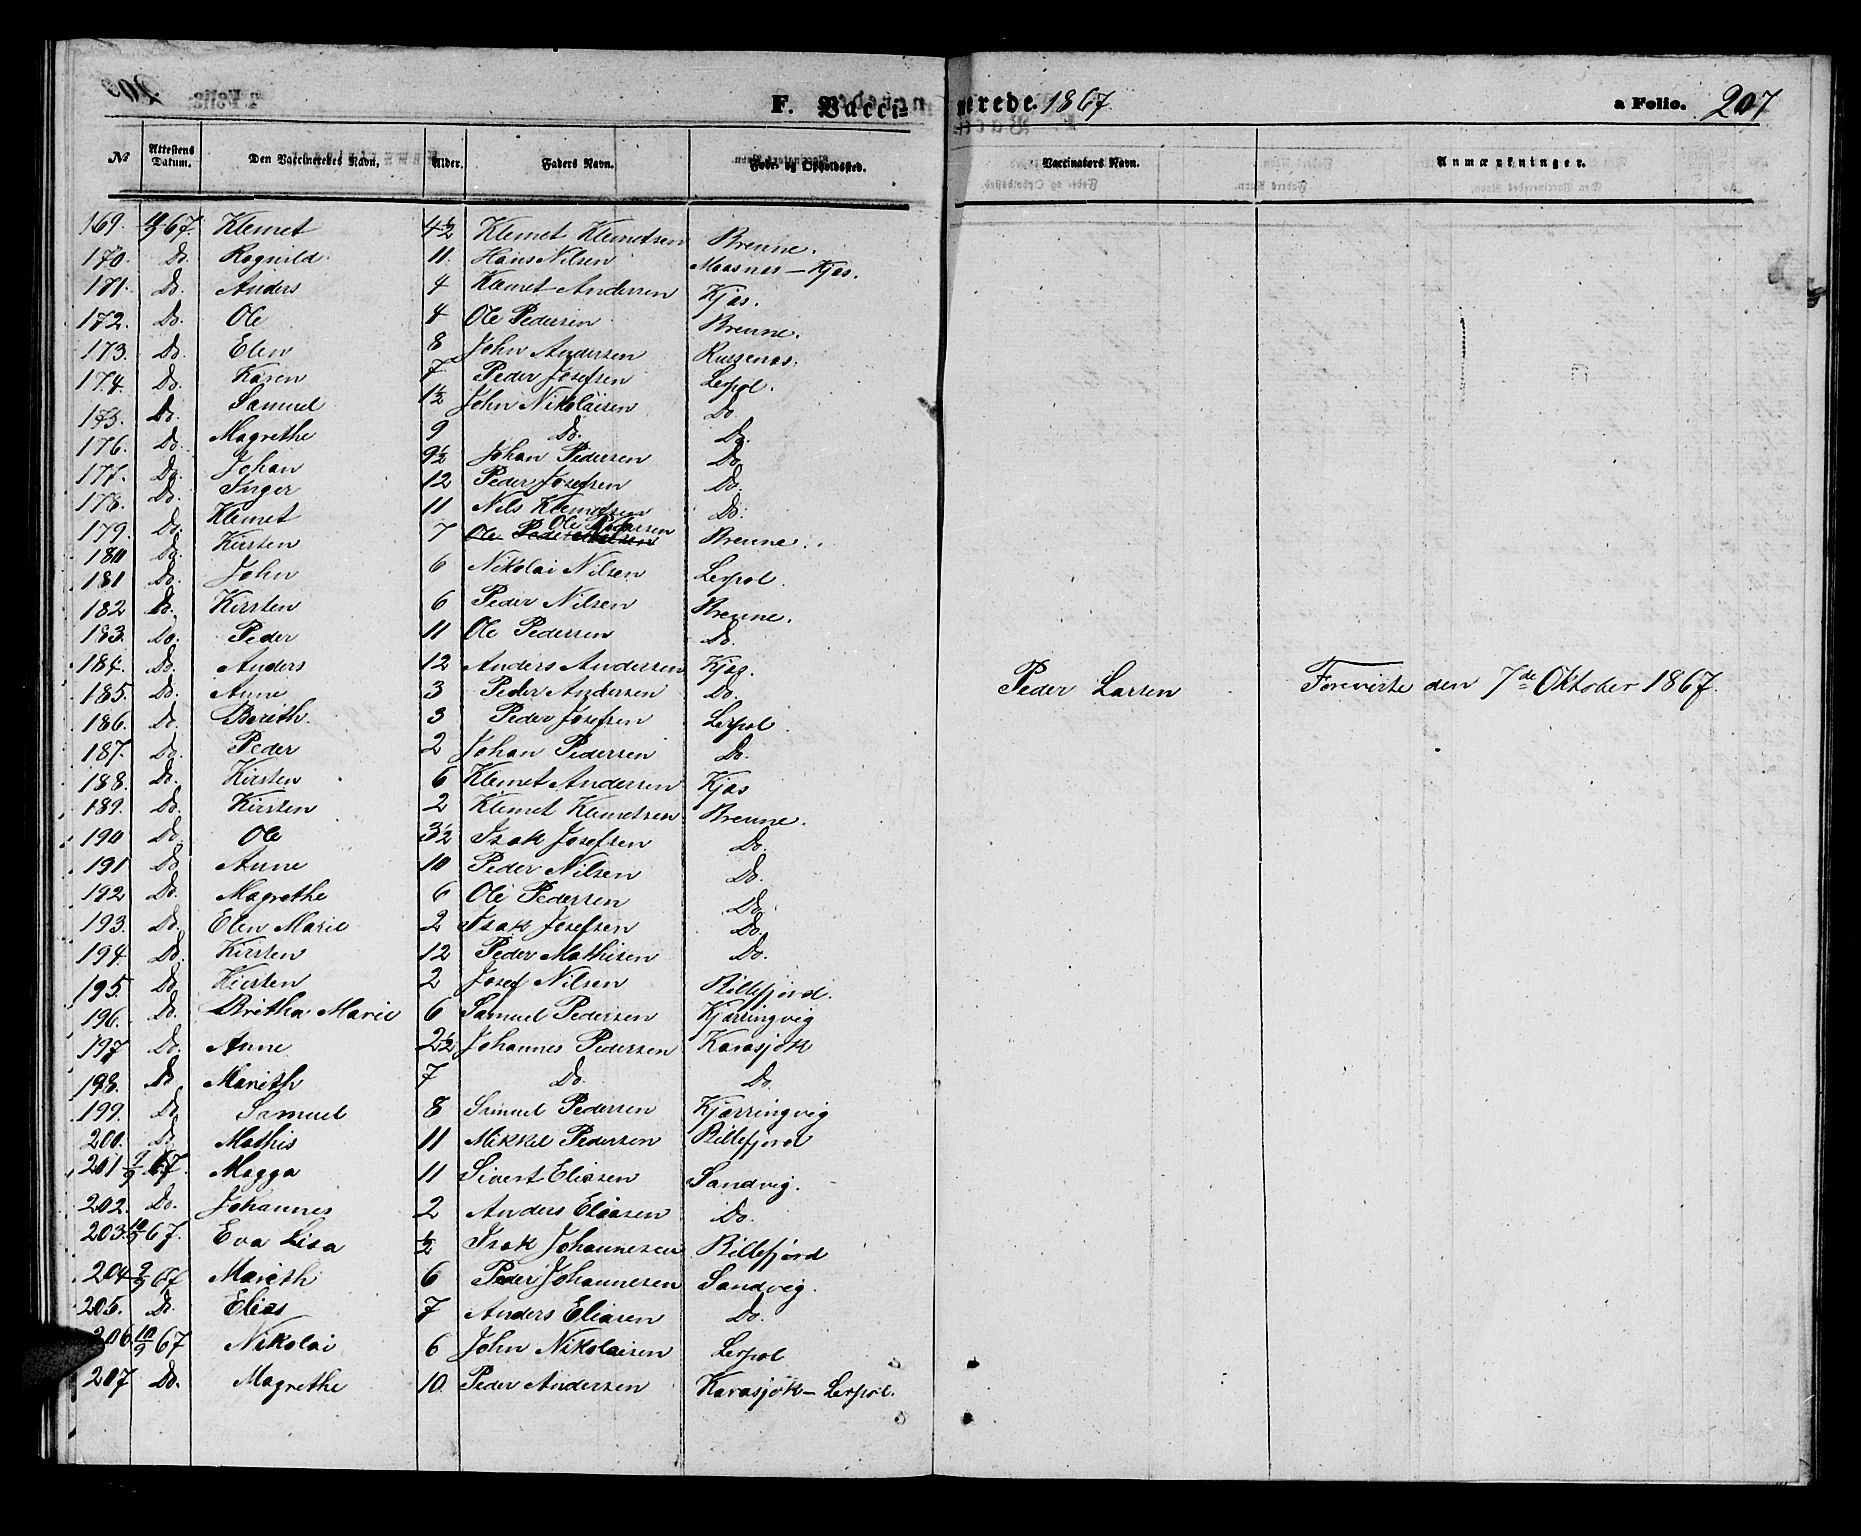 F. Vacci- nerede 1867. a Folio. 207
No Attestens Datum. Den Vaccineredes Navn, Alder. Faders Navn. Føde- og Opholdssted. Vaccinators Navn. Anmærkninger.
169. 67. Klemet 4½ Klemet Klemetsen Brenne.
170. Do. Ragnild 11. Hans Nilsen Kjæs.
171. Do. Anders 4 Klemet Andersen Kjæs.
172. Do. Ole 4 Ole Pedersen Brenne.
173. Do. Elen 8 John Andersen Russenæs.
174. Do. Karen 7 Peder Josefsen Lerpol.
175. Do. Samuel 1½ John Nikolaisen Do.
176. Do. Magrethe 9 Do. Do.
177. Do. Johan 9½ Johan Pedersen Do.
178. Do. Inger 12 Peder Josefsen Do.
179. Do. Klemet 11 Nils Klemetsen Do.
180 Do. Kirsten 7 Ole Pedersen Brenne.
181 Do. John 6 Nikolai Nilsen Lerpol.
182 Do. Kirsten 6 Peder Nilsen Brenne.
183. Do. Peder 11 Ole Pedersen Do.
184. Do. Anders 12 Anders Andersen Kjæs. Peder Larsen Foreviste den 7de Oktober 1867.
185. Do. Anne 3 Peder Andersen Do.
186. Do. Berith. 3 Peder Josefsen Lerpol
187. Do. Peder 2 Johan Pedersen Do.
188. Do. Kirsten 6 Klemet Andersen Kjæs
189. Do. Kirsten 2 Klemet Klemetsen Brenne.
190 Do. Ole 3½ Isak Josefsen Do.
191 Do. Anne 10 Peder Nilsen Do.
192 Do. Magrethe 6 Ole Pedersen Do.
193. Do. Elen Marie 2 Isak Josefsen Do.
194. Do. Kirsten 12 Peder Mathisen Do.
195. Do. Kirsten 2 Josef Nilsen Billefjord.
196. Do. Britha Marie 6 Samuel Pedersen Kjærringvig
197 Do. Anne 2½ Johannes Pedersen Karasjok
198. Do. Marith 7 Do. Do.
199. Do. Samuel 8 Samuel Pedersen Kjærringvig
200. Do. Mathis 11 Mikkel Pedersen Billefjord
201 9/9 67. Magga 11 Sivert Eliasen Sandvig.
202. Do. Johannes 2 Anders Eliasen Do.
203. 10/9 67. Eva Lisa ½ Isak Johannesen Billefjord
204 9/9 67 Marith 6 Peder Johannesen Sandvig.
205. Do. Elias 7 Anders Eliasen Do.
206. 10/9 67 Nikolai 6 John Nikolaisen Lerpol
207 Do. Magrethe 10. Peder Andersen Karasjok - Lerpol.